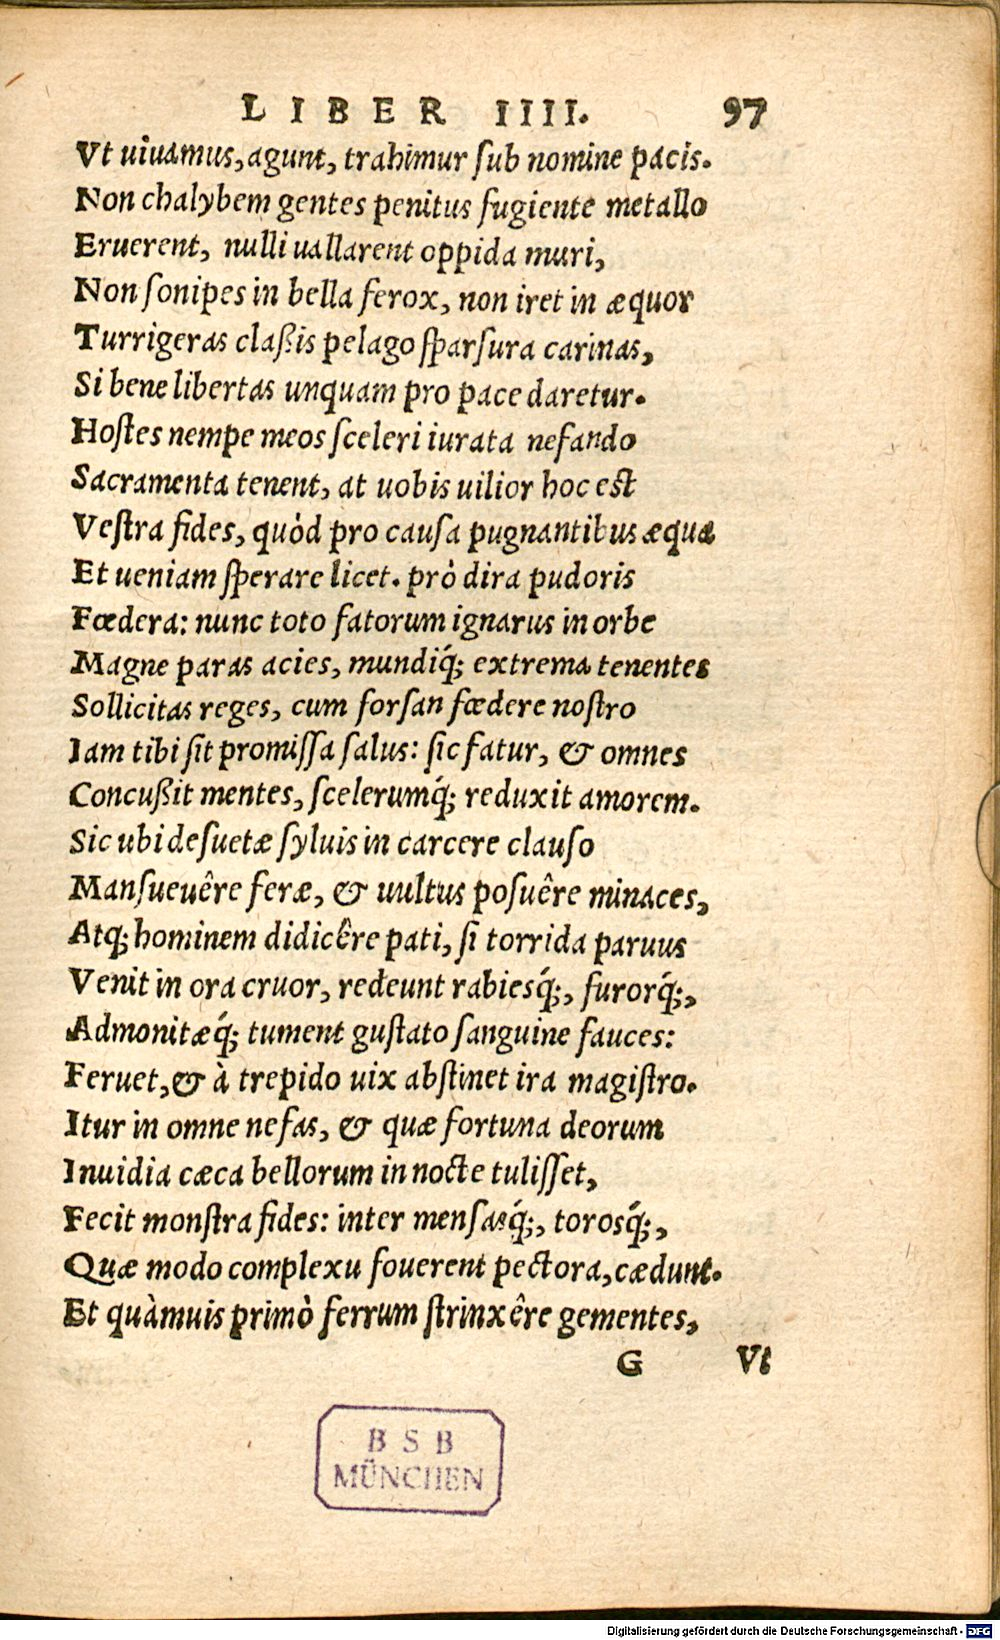 LIBER IIII. 97
Vt uiuamus, agunt, trahimur ſub nomine pacis.
Non chalybem gentes penitus fugiente metallo
Eruerent, nulli uallarent oppida muri,
Non ſonipes in bella ferox, non iret in æquor
Turrigeras claßis pelago ſparſura carinas,
Si bene libertas unquam pro pace daretur.
Hoſtes nempe meos ſceleri iurata nefando
Sacramenta tenent, at uobis uilior hoc eſt
Veſtra fides, quòd pro cauſa pugnantibus æqua
Et ueniam ſperare licet. prò dira pudoris
Fœdera: nunc toto fatorum ignarus in orbe
Magne paras acies, mundiq́; extrema tenentes
Sollicitas reges, cum forſan fœdere noſtro
Iam tibi ſit promiſſa ſalus: ſic fatur, & omnes
Concußit mentes, ſcelerumq́; reduxit amorem.
Sic ubi deſuetæ ſyluis in carcere clauſo
Manſueuêre feræ, & uultus poſuêre minaces,
Atq; hominem didicêre pati, ſi torrida paruus
Venit in ora cruor, redeunt rabiesq́;, furorq́;,
Admonitæq́; tument guſtato ſanguine fauces:
Feruet, & à trepido uix abſtinet ira magiſtro.
Itur in omne nefas, & quæ fortuna deorum
Inuidia cæca bellorum in nocte tuliſſet,
Fecit monſtra fides: inter menſasq́;, torosq́;,
Quæ modo complexu fouerent pectora, cædunt.
Et quàmuis primò ferrum ſtrinxêre gementes,
G Vt
BSB
MÜNCHEN
Digitalisierung gefördert durch die Deutsche Forschungsgemeinschaft - DFG